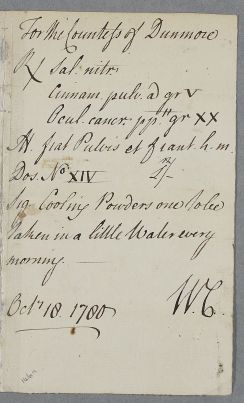 For the Countess of Dunmore
℞ Sal: nitr
Cinnam. pulv. a͂ gr V
Ocul. cancr. ppt gr XX
M. fiat Pulvis et fiant h. m.
Dos. No XIV
Sig Cooling Powders one to be
taken in a little Water every
morning. —
Octr 18. 1780
W.C.